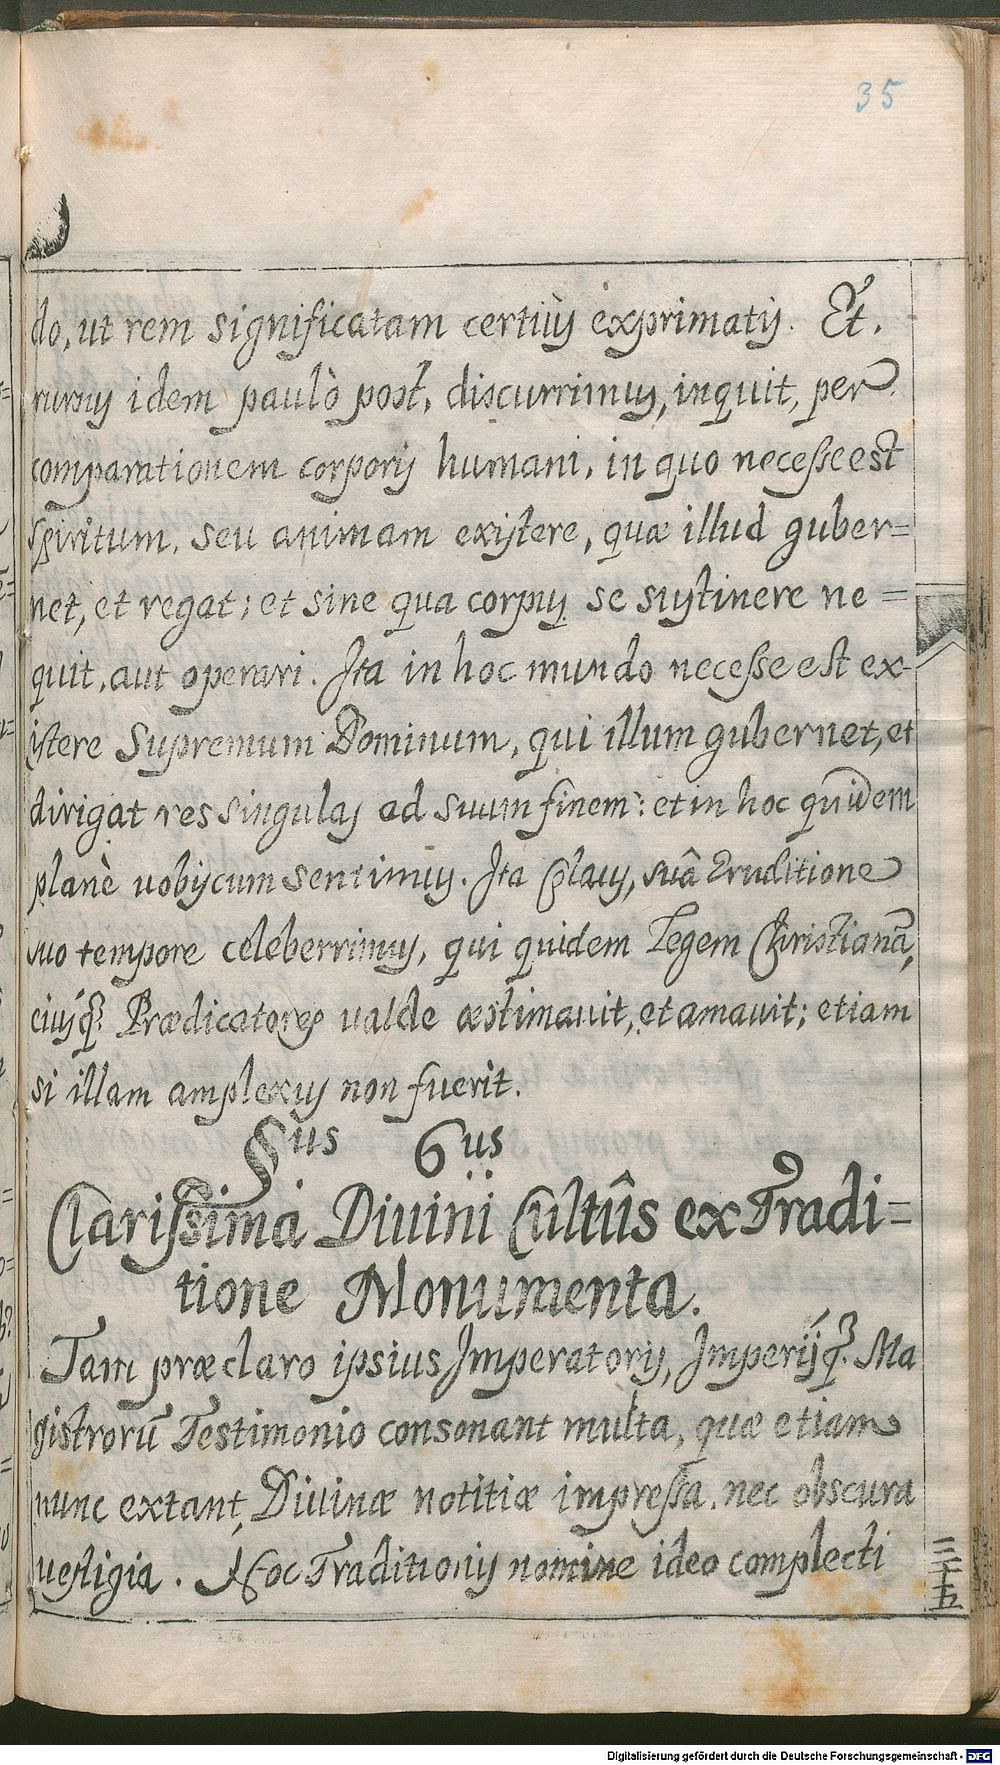 35
do, ut rem significatam certiùs exprimatis. Et,
rursus idem paulò post, discurrimus, inquit, per
comparationem corporis humani, in quo necesse est
spiritum, seu animam existere, quæ illud guber=
net, et regat; et sine qua corpus se sustinere ne=
quit, aut operari. Ita in hoc mundo necesse est ex-
istere Supremum Dominum, qui illum gubernet, et
dirigat res singulas ad suum finem: et in hoc quidem
planè vobiscum sentimus. Ita Colaus, suâ Eruditione
suo tempore celeberrimus, qui quidem Legem Christianã,
eiusq́; Prædicatores valde æstimauit, et amauit; etiam
si illam amplexus non fuerit.
§us 6us
Clarissima Diuini Cultûs ex Tradi=
tione Monumenta.
Tam præclaro ipsius Imperatoris, Imperijq́; Ma
gistrorũ Testimonio consonant multa, quæ etiam
nunc extant, Diuinæ notitiæ impressa, nec obscura
uestigia. Hoc Traditionis nomine ideo complecti
三十五
Digitalisierung gefördert durch die Deutsche Forschungsgemeinschaft - DFG